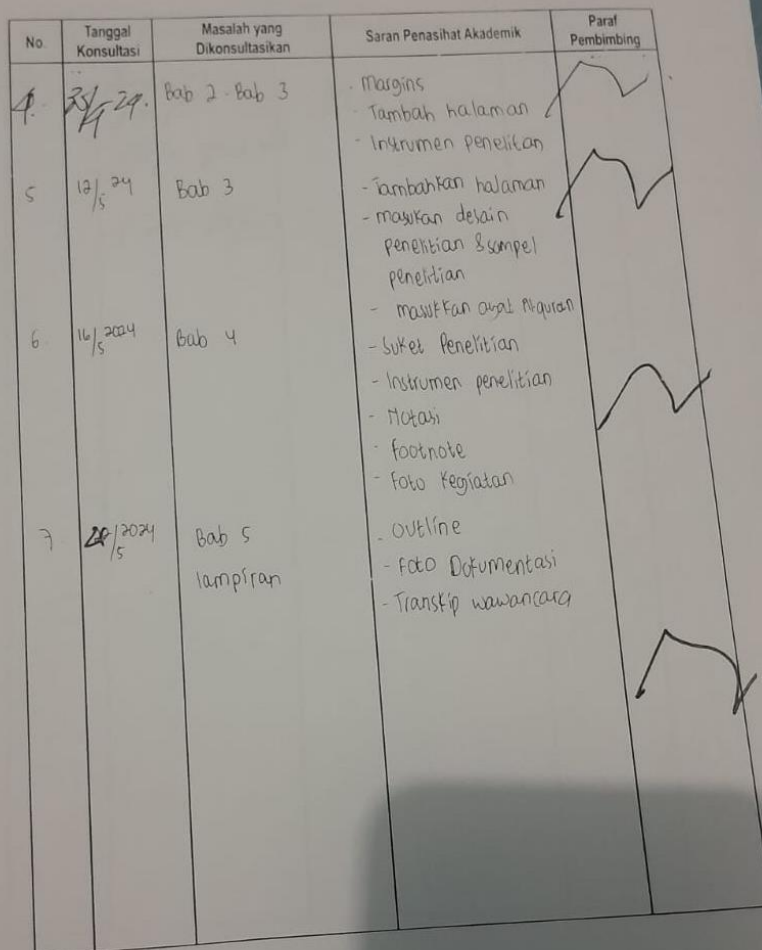 No.
Tanggal
Konsultasi
Masalah yang
Dikonsultasikan
Saran Penasihat Akademik
Paraf
Pembimbing
4. Bab 2 - Bab 3
. Margins
- Tambah halaman
- Instrumen penelitan
5 12/5 24 Bab 3
- Tambahkan halaman
- masukan desain
penelitian & sampel
penelitian
- masukkan ayat Al-quran
6 16/5 2024 Bab 4
- Suket Penelitian
- Instrumen penelitian
-
- footnote
- Foto Kegiatan
7 /5 2024 Bab 5
lampiran
. outline
- Foto Dokumentasi
- Transkip wawancara